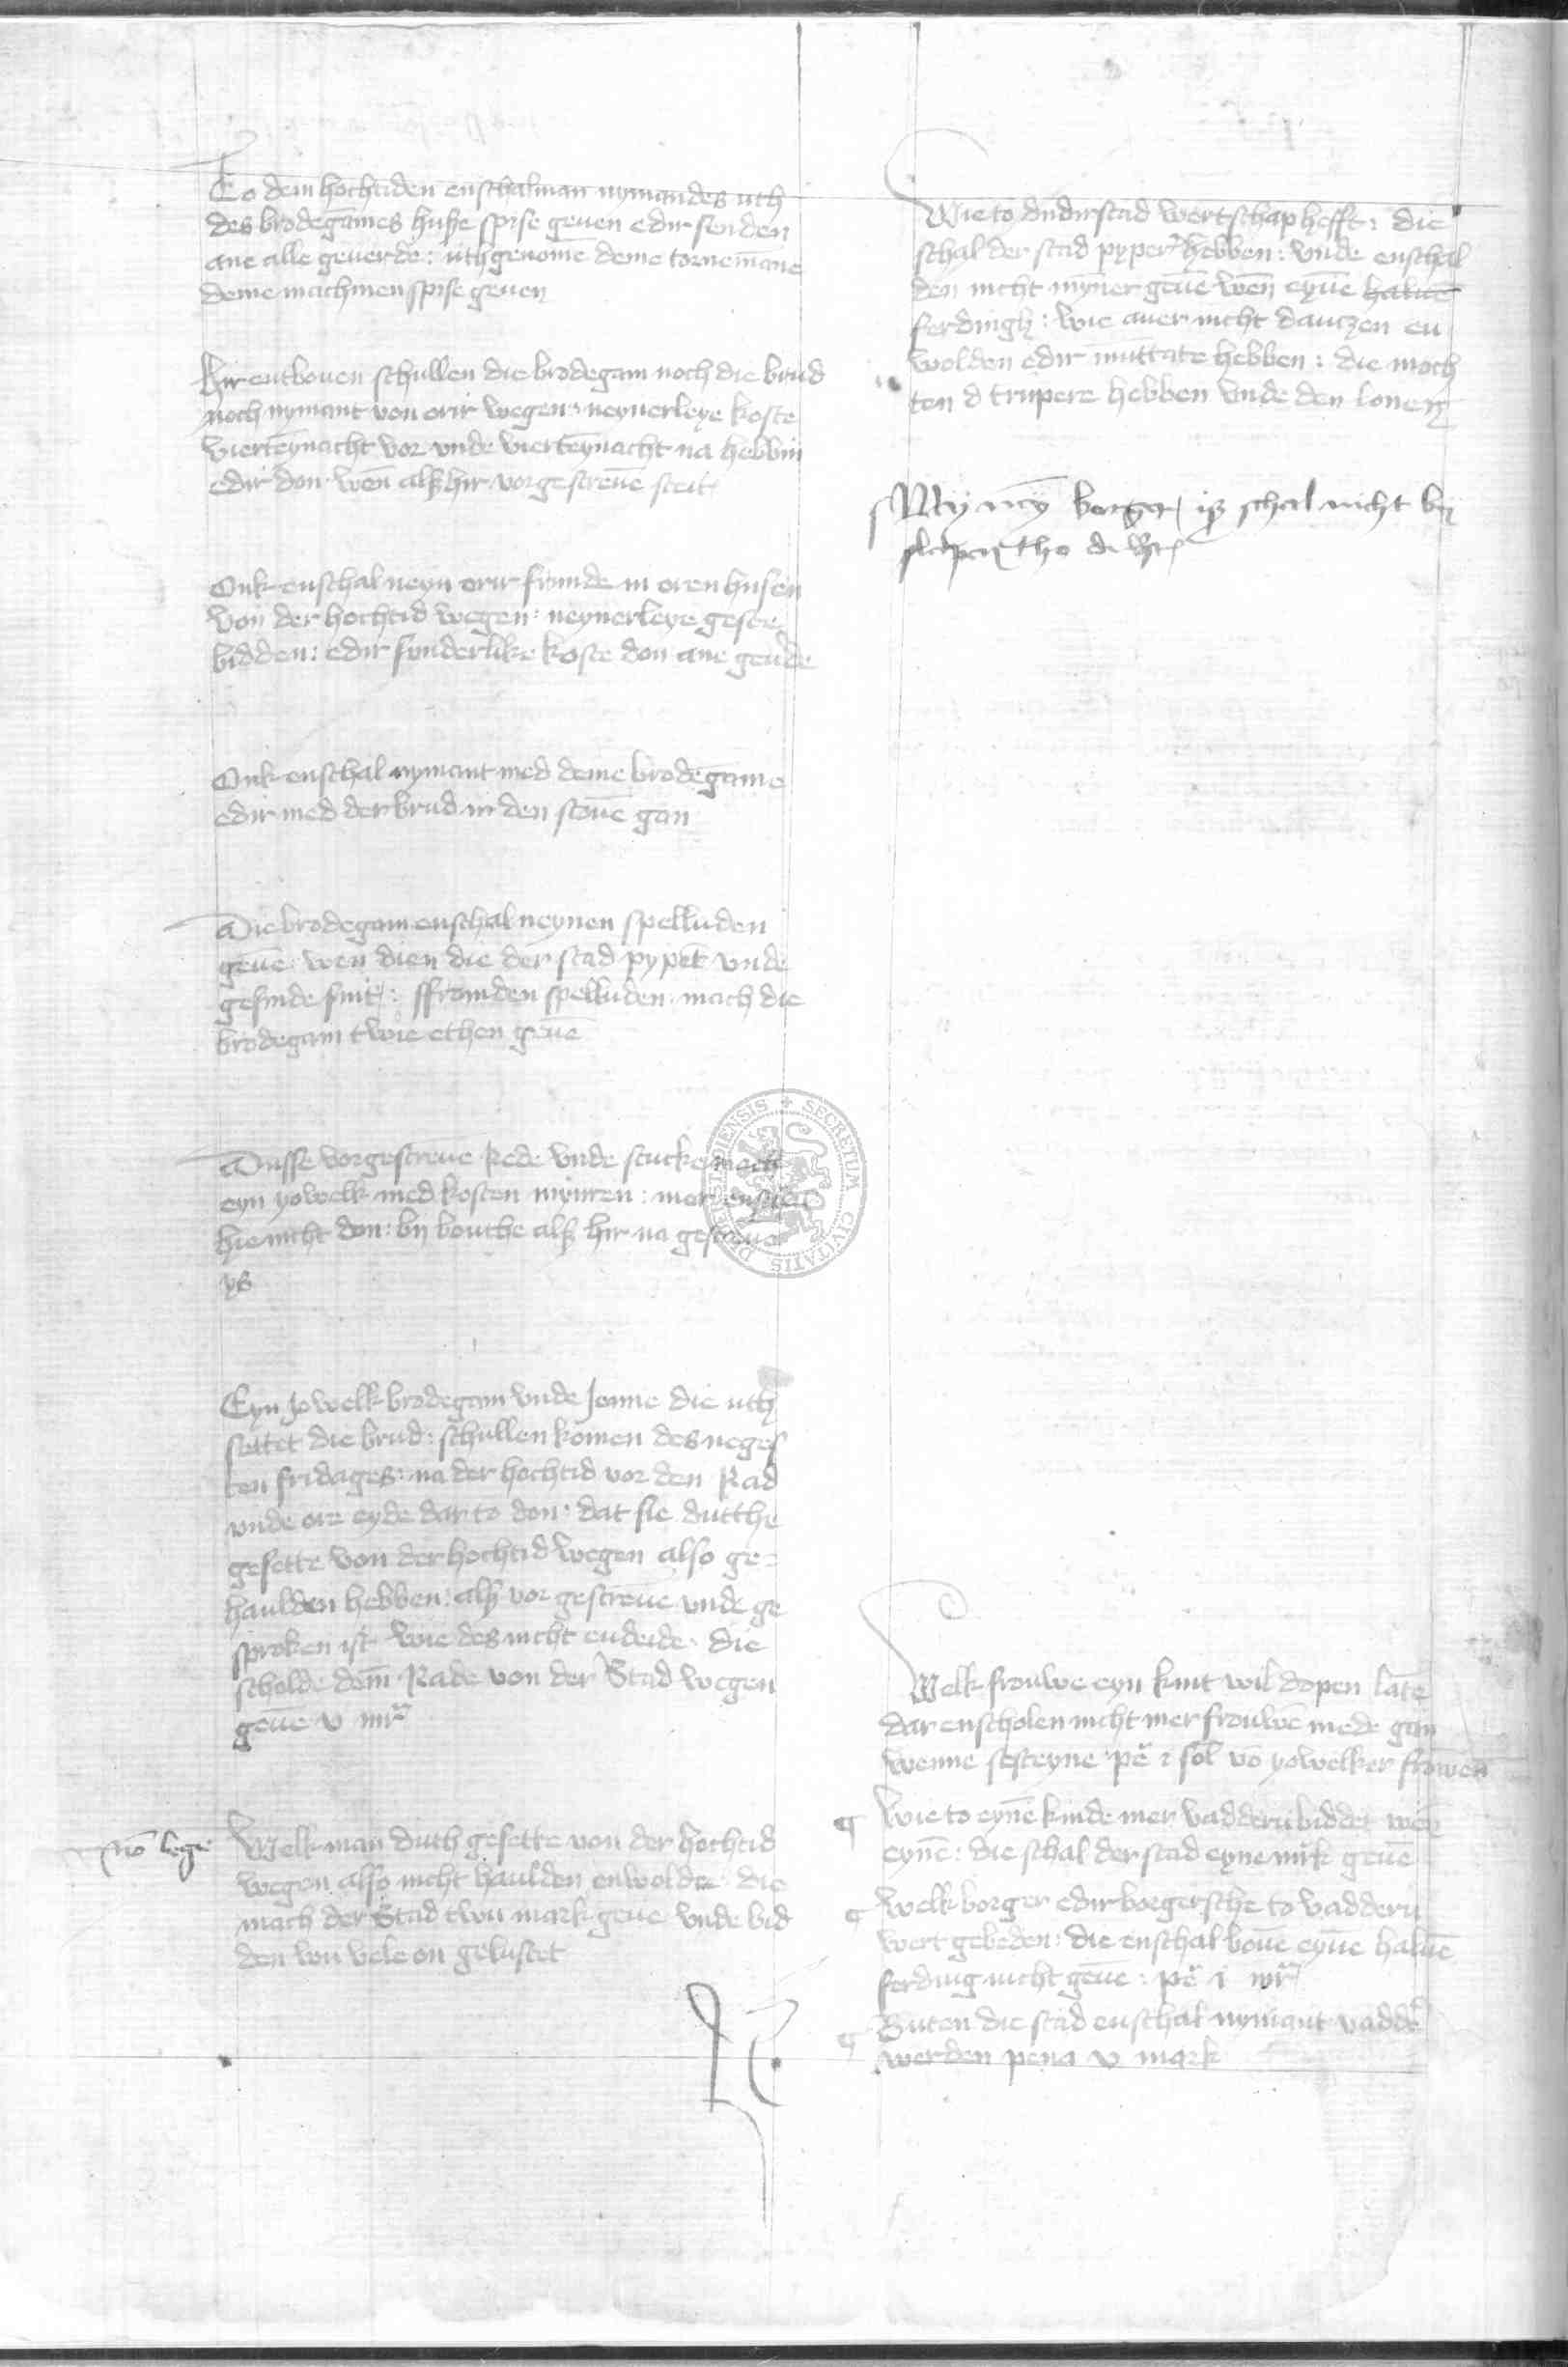 To dem hochtiden enschalman nymandes uth
des brodegames huße spise geuen edir senden
ane alle geuerde: uthgenomē deme tornemāne
deme machmen spise geuen
Hir entbouen schullen die brodegam noch die brud
noch nymant von orir wegen neynerleye koste
viertēynacht vor vnde viertēynacht na hebbin
edir don wen̄ alß hir vorgescreuē steit
Ouk enschal neyn orir frunde in oren husen
von der hochtid wegen: neynerleye geste
bidden: edir sunderlike koste don ane geūde
Ouk enschal nymant med deme brodegame
edir med der brud in den stouē gan
Die brodegam enschal neynen spelluden
geuē wen dien die der stad pypēr vnde
gesinde sint: ffromden spelluden mach die
brodegam twie ethen geuē
Dusse vorgescreuē Rede vnde stucke mach
eyn yowelk med kosten mynren: mer enschal
hie nicht don: by bouthe alß hir na gescreuē
ys
Eyn Jowelk brodegam vnde Jenne die uth
settet die brud: schullen komen des neges
ten fridages: na der hochtid vor den Rad
vnde ore eyde dar to don dat sie dutthe
gesette von der hochtid wegen also ge-
haulden hebben: alß vor gescreuē vnde ge
sproken ist wie des nicht endeide die
scholde dem̄ Rade von der Stad wegen
geuē v mr̄
nō lege
Welk man duth gesette von der hochtid
wegen also nicht haulden enwolde die
mach der Stad twu mark geue vnde bid
den wu vele on gelustet
Wie to dudirstad wertschap hefft: die
schal der stad pyper hebben: vnde enschal
den nicht mynner geuē wen̄ eynē haluē
ferdingh: wie auer nicht dantzen en
wolden edir muttate hebben: die moch
ten d trupere hebben vnde den lonen
borger schal nicht by
slapen tho
Welk frouwe eyn kint wil dopen latē
dar enscholen nicht mer frouwē mede gan
wenne sesteyne pē i sol vō yowelker frowen
¶ Wie to eynē kinde mer vaddern biddet wen
eynē: die schal der stad eyne mrk geuē
¶ Welk borger edir borgersche to vaddern
wert gebeden: die enschal bouē eynē haluē
ferding nicht geuē: pē i mr̄
¶ Buten die stad enschal nymant vadder
werden pena v mark